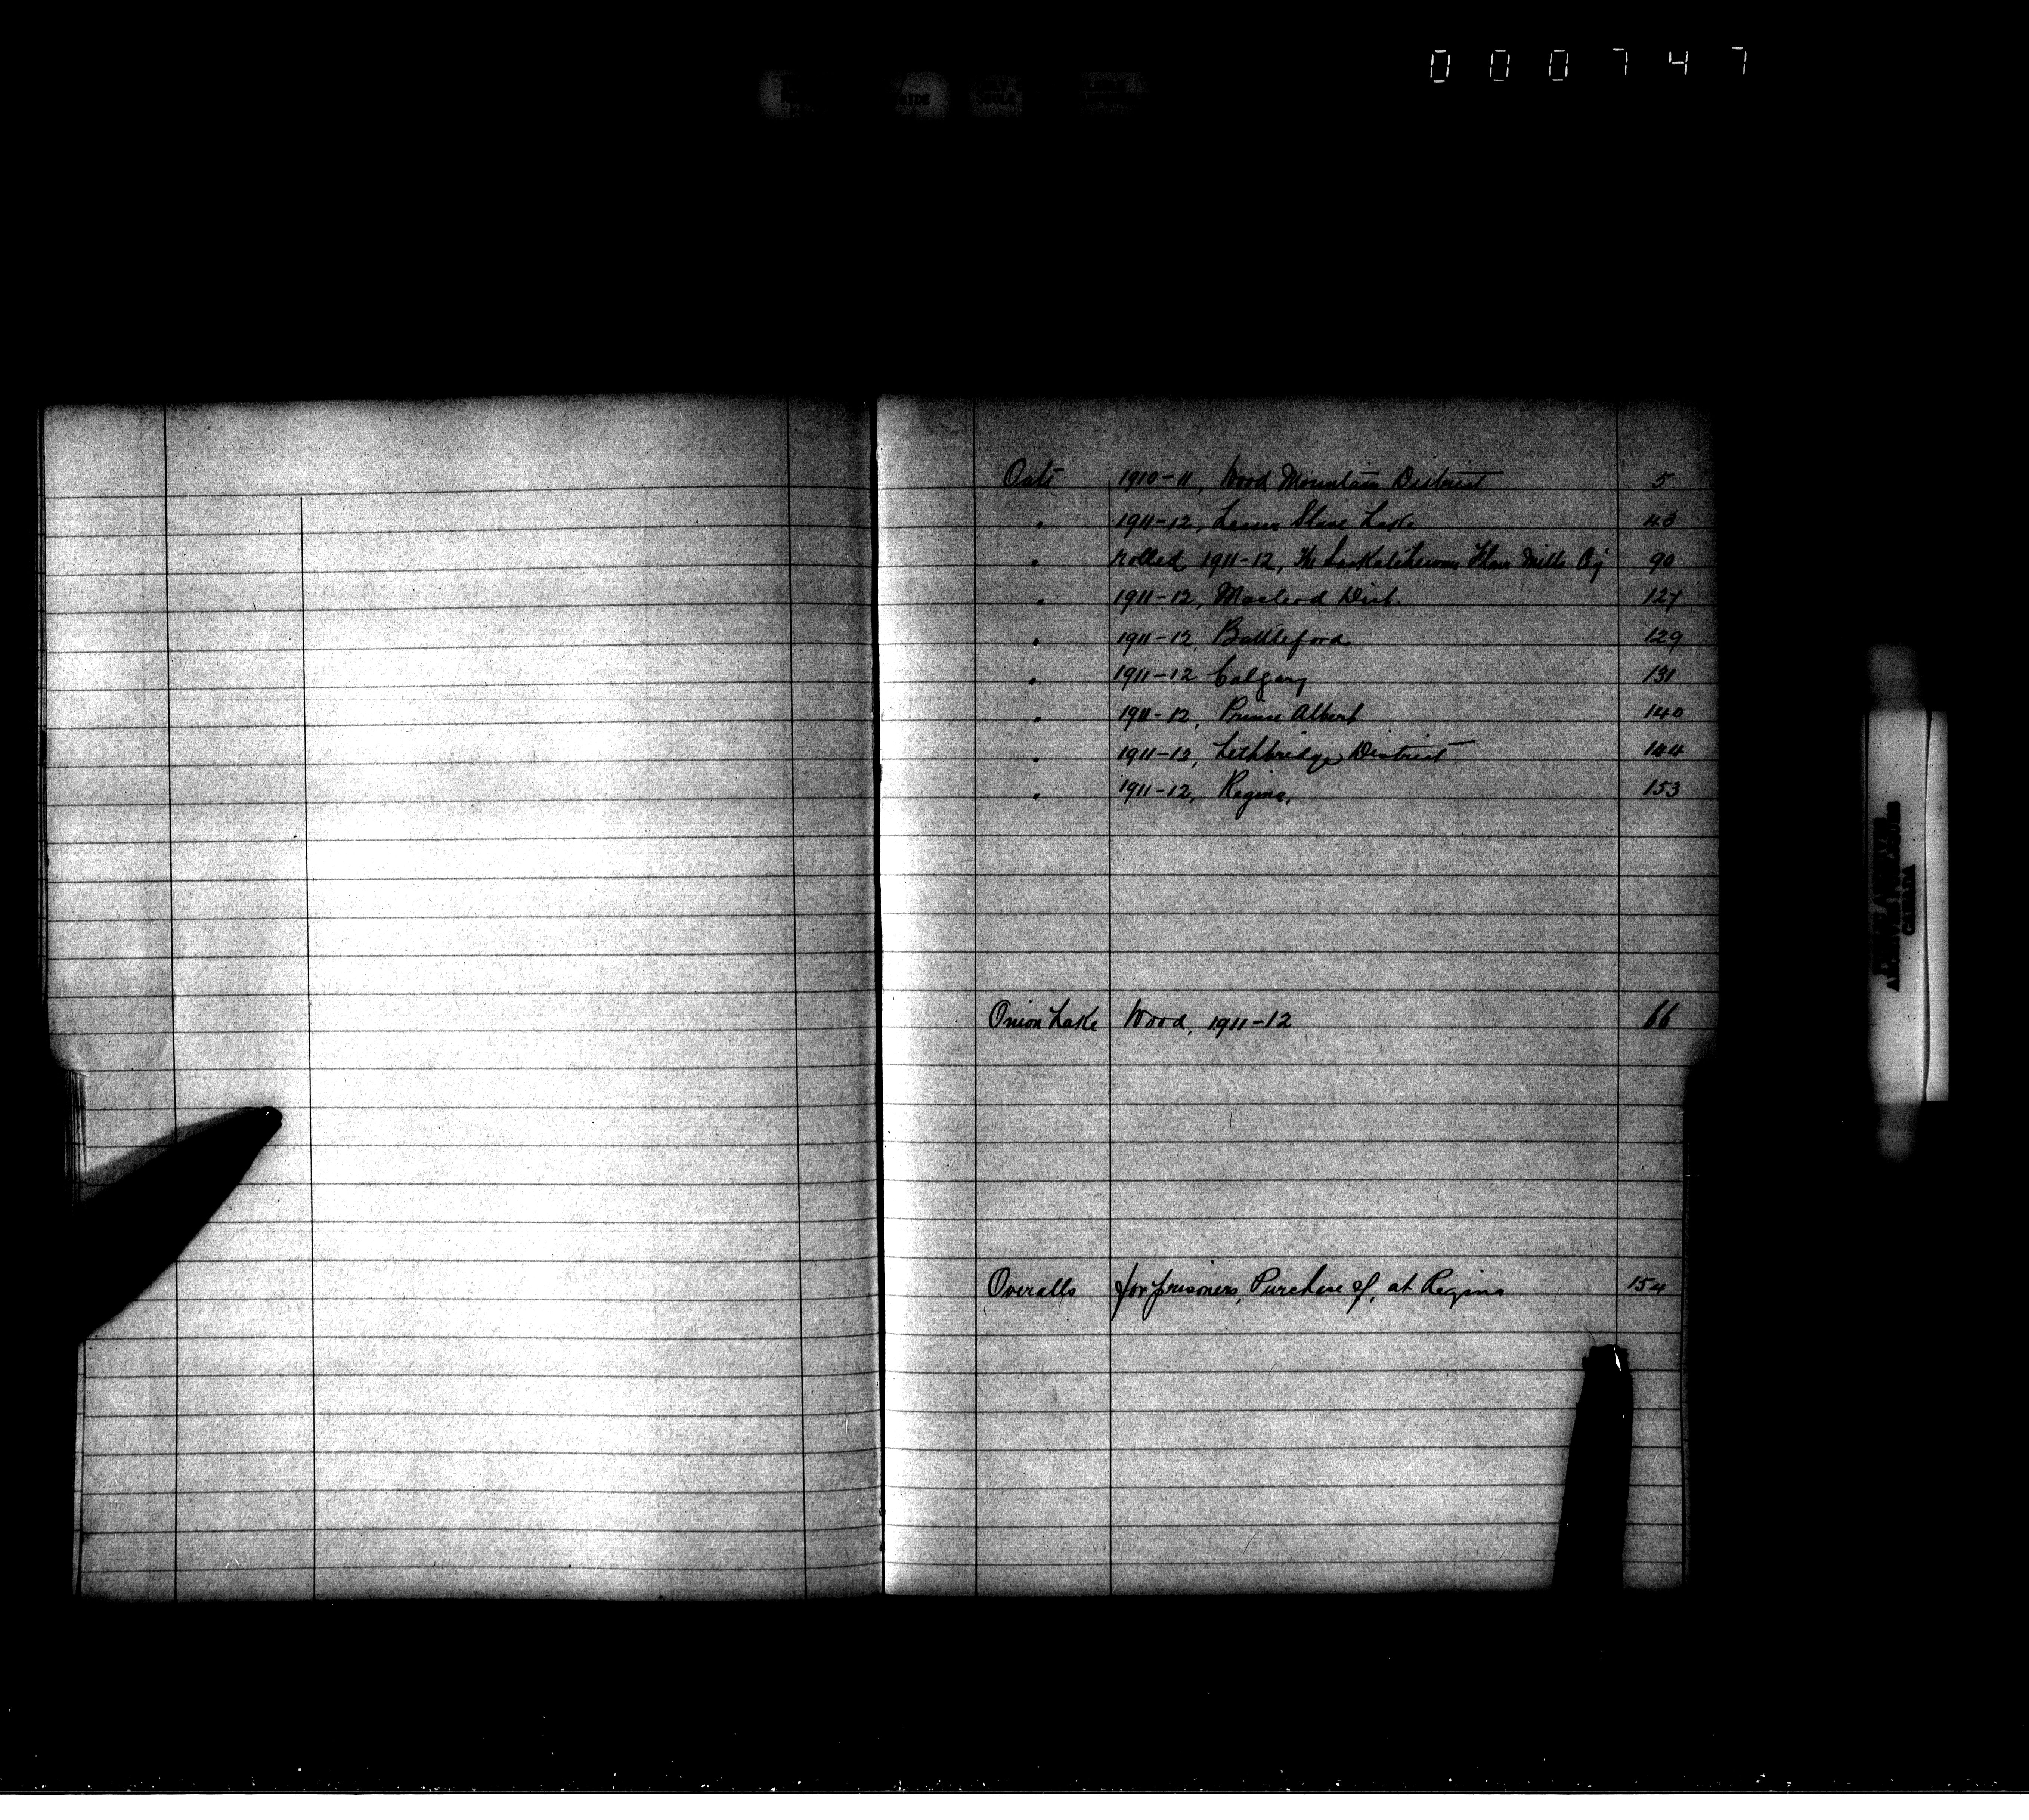 000747
Oats 1910-11, Wood Mountain District 5
" 1911-12, Lesser Slave Lake 43
" rolled 1911-12, The Saskatchewan Flour Mills Coy 90
" 1911-12, Macleod Dist. 127
" 1911-12, Battleford 129
" 1911-12 Calgary 131
" 1911-12, Prince Albert 140
" 1911-12, Lethbridge District 144
" 1911-12, Regina, 153
Onion Lake Wood, 1911-12 66
Overalls for prisoners, Purchase of, at Regina 154
CANADA